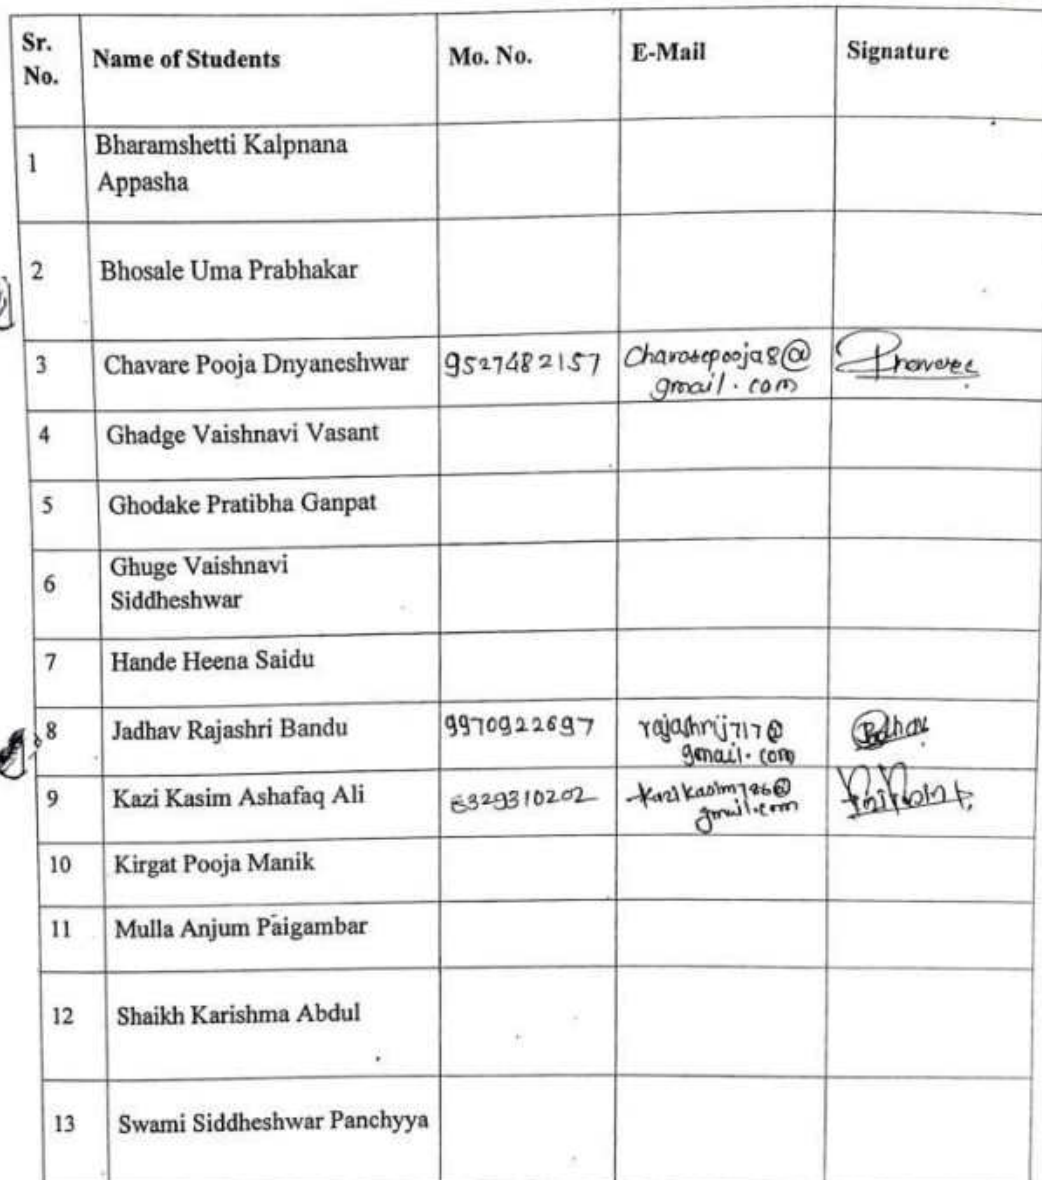 Sr. No. Name of Students Mo. No. E-Mail Signature
1 Bharamshetti Kalpnana
Appasha
2 Bhosale Uma Prabhakar
3 Chavare Pooja Dnyaneshwar 9527482157 Chavarepooja8@
gmail.com
4 Ghadge Vaishnavi Vasant
5 Ghodake Pratibha Ganpat
6 Ghuge Vaishnavi
Siddheshwar
7 Hande Heena Saidu
8 Jadhav Rajashri Bandu 9970922697 rajashrij717@
gmail.com
9 Kazi Kasim Ashafaq Ali kazikasim786@
gmail.com
10 Kirgat Pooja Manik
11 Mulla Anjum Paigambar
12 Shaikh Karishma Abdul
13 Swami Siddheshwar Panchyya